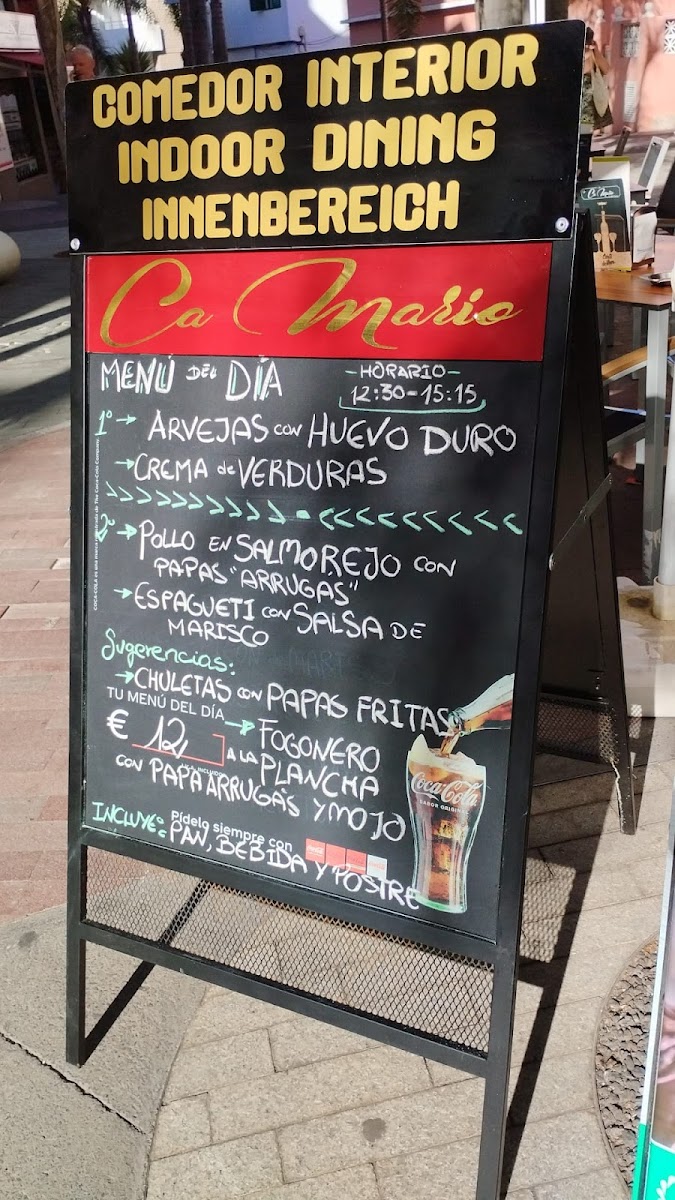 COMEDOR INTERIOR
INDOOR DINING
INNENBEREICH
Ca Mario
MENÚ DEL DÍA
-HORARIO-
12:30-15:15
1º → ARVEJAS CON HUEVO DURO
→ CREMA de VERDURAS
2º → POLLO EN SALMOREJO CON
PAPAS "ARRUGÁS"
→ ESPAGUETI CON SALSA DE
MARISCO
Sugerencias:
→ CHULETAS CON PAPAS FRITAS
TU MENÚ DEL DÍA
€ 12,
→ FOGONERO
A LA PLANCHA
CON PAPA ARRUGÁS Y MOJO
Coca-Cola
SABOR ORIGINAL
INCLUYE:
Pídelo siempre con
PAN, BEBIDA Y POSTRE